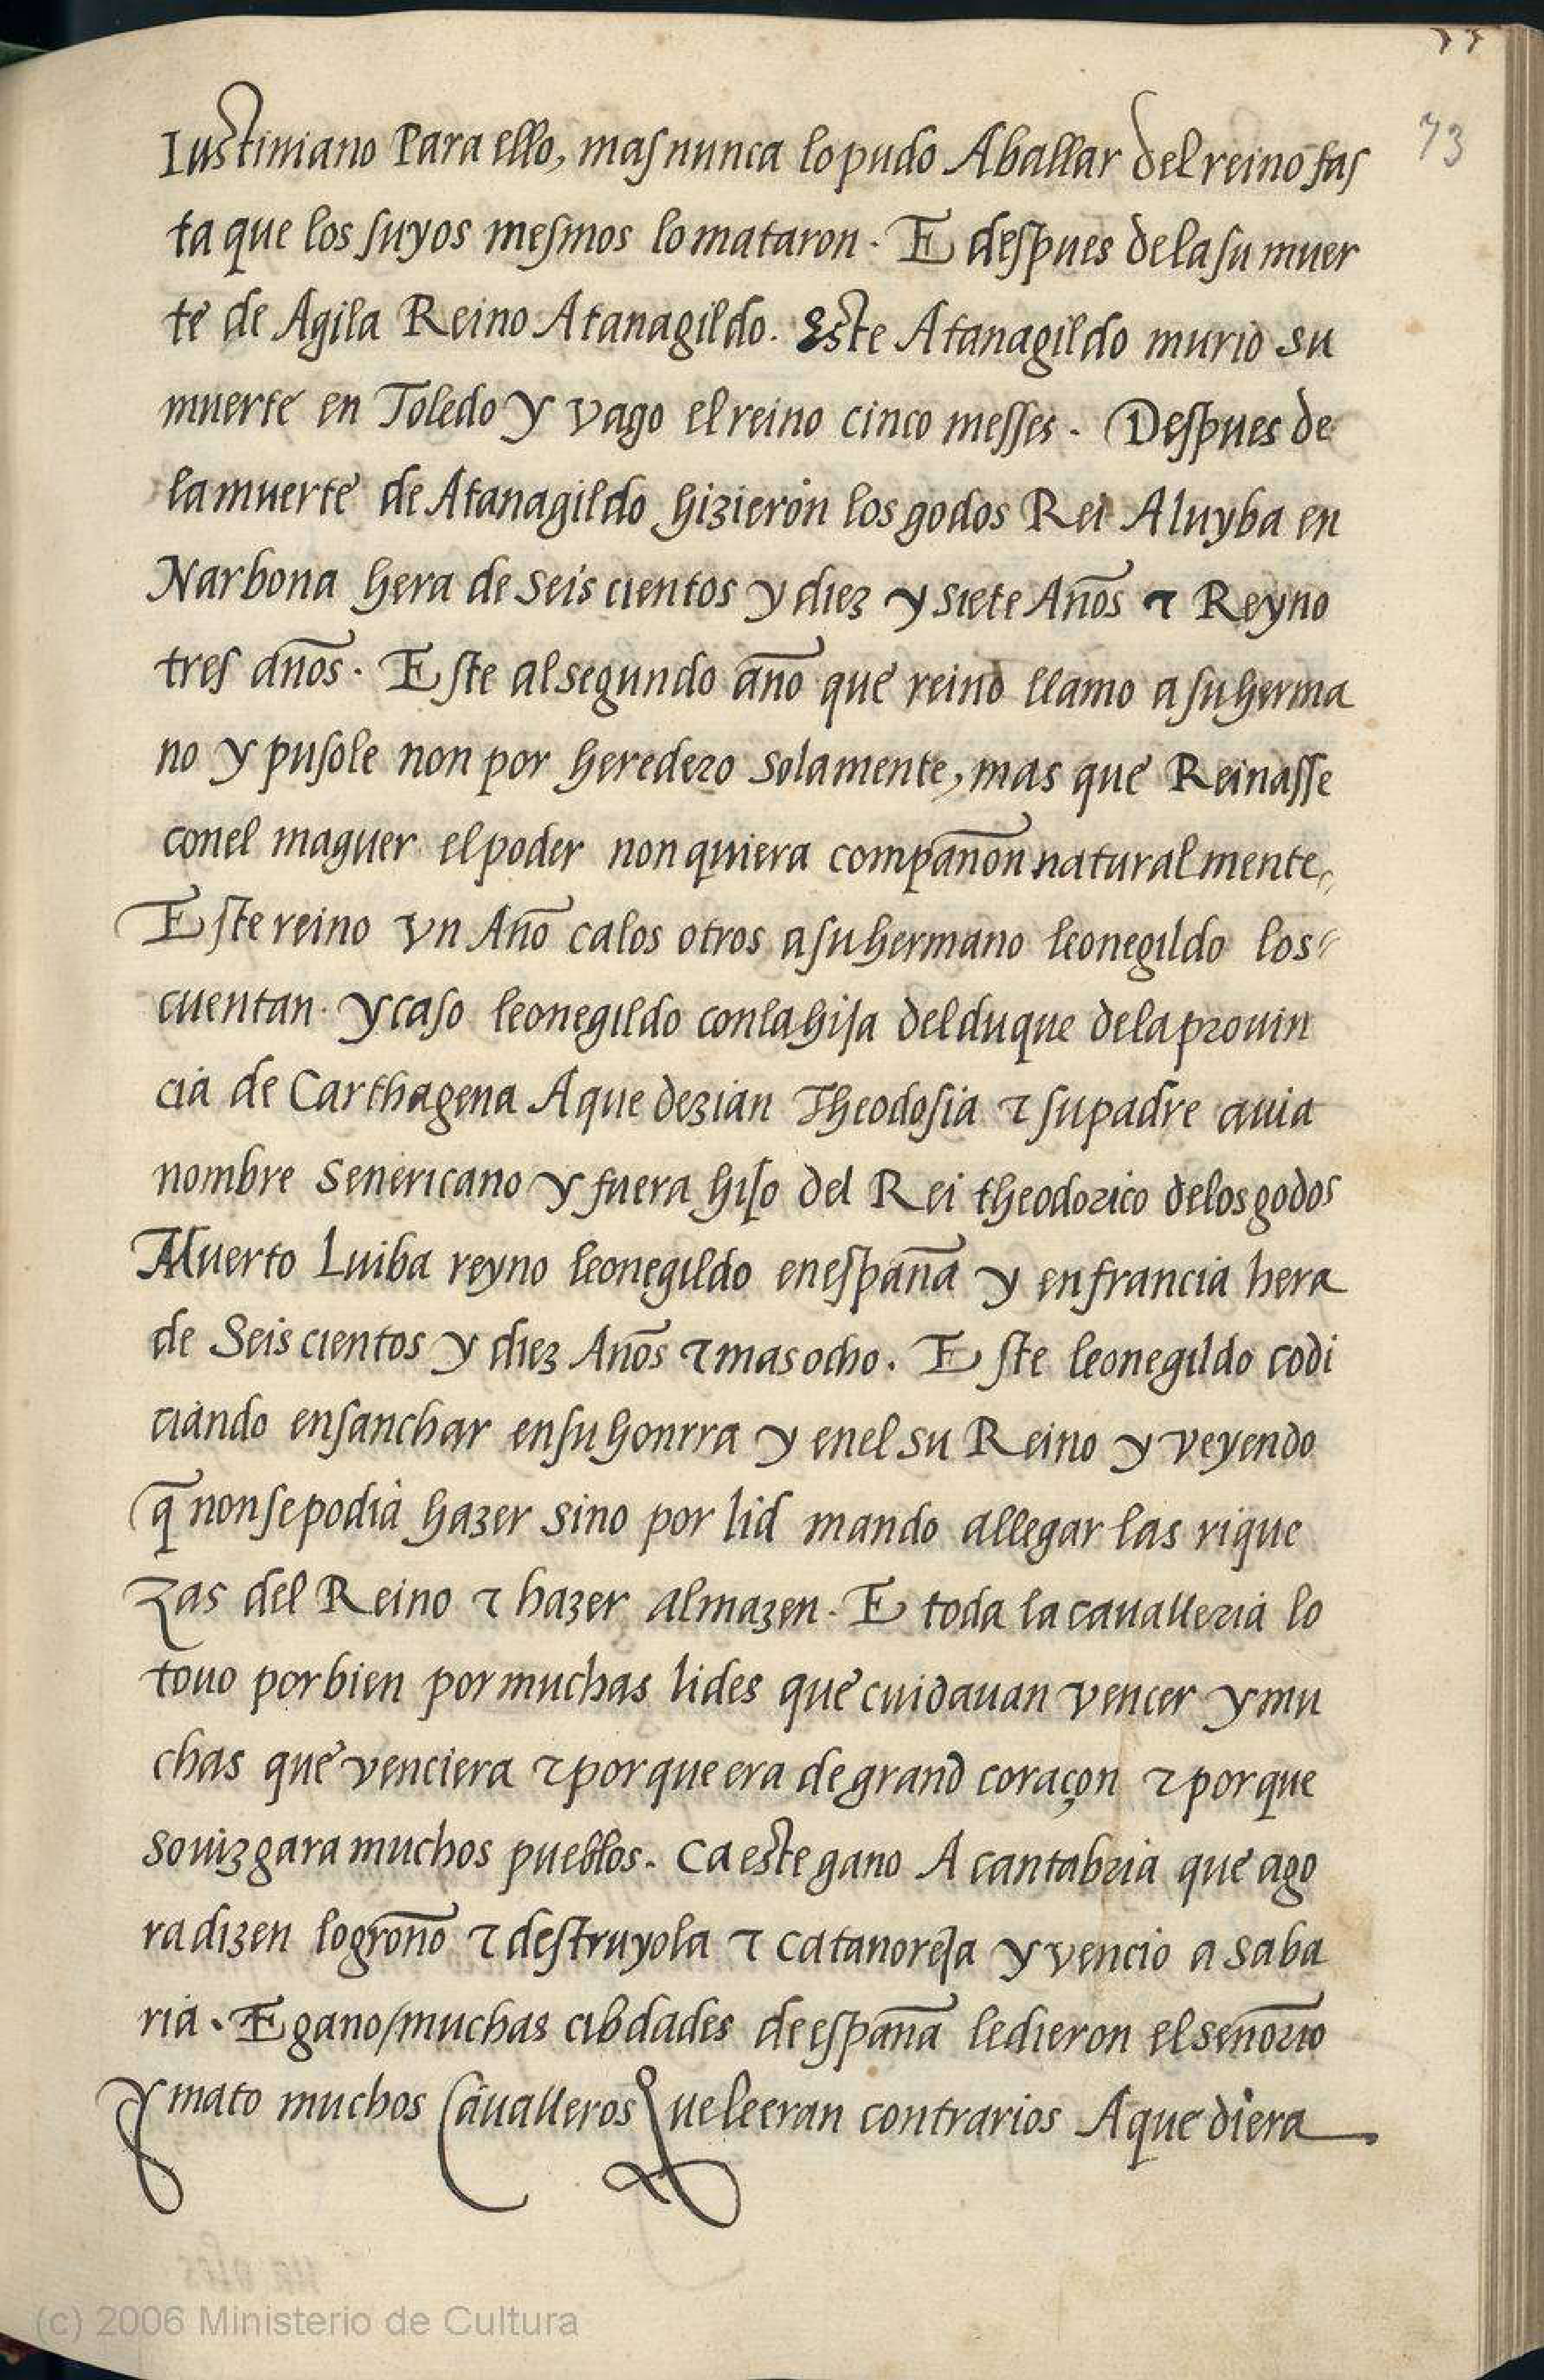 73
Iustiniano Para ello, mas nunca lo pudo Aballar del reino fas
ta que los suyos mesmos lo mataron. E despues de la su muer
te de Agila Reino Atanagildo. Este Atanagildo murio su
muerte en Toledo y vago el reino cinco messes. Despues de
la muerte de Atanagildo hizieron los godos Rei Aluyba en
Narbona hera de seis cientos y diez y siete Años & Reyno
tres años. Este al segundo año que reino llamo a su herma
no y pusole non por heredero solamente, mas que Reinasse
con el maguer el poder non quiera compañon naturalmente,
Este reino vn Año ca los otros a su hermano leonegildo los
cuentan. y caso leonegildo con la hija del duque de la prouin
cia de Carthagena A que dezian Theodosia & su padre auia
nombre Senericano y fuera hijo del Rei theodorico de los godos
Muerto Luiba reyno leonegildo en españa y en francia hera
de Seis cientos y diez Años & mas ocho. Este leonegildo codi
ciando ensanchar en su honrra y en el su Reino y veyendo
q̄ non se podia hazer sino por lid mando allegar las rique
zas del Reino & hazer almazen. E toda la caualleria lo
touo por bien por muchas lides que cuidauan vencer y mu
chas que venciera & porque era de grand coraçon & porque
sovizgara muchos pueblos. Ca este gano A cantabria que ago
ra dizen logroño & destruyola & catanoreja y vencio a saba
ria. E gano/muchas cibdades de españa le dieron el señorio
y mato muchos Caualleros Que le eran contrarios A que diera
(c) 2006 Ministerio de Cultura